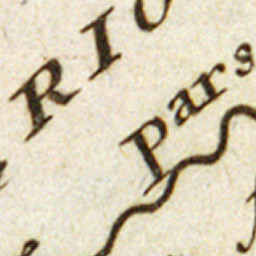 RIO
Pars